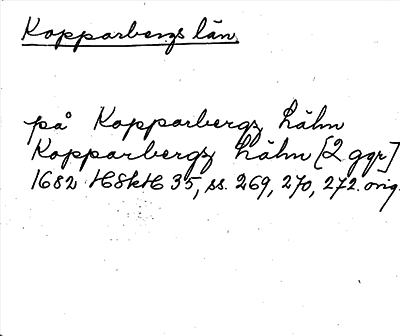 Kopparbergs län
på Kopparbergz Lähn
Kopparbergz Lähn [2 ggr]
1682 HSkH 35, ss. 269, 270, 272. orig.